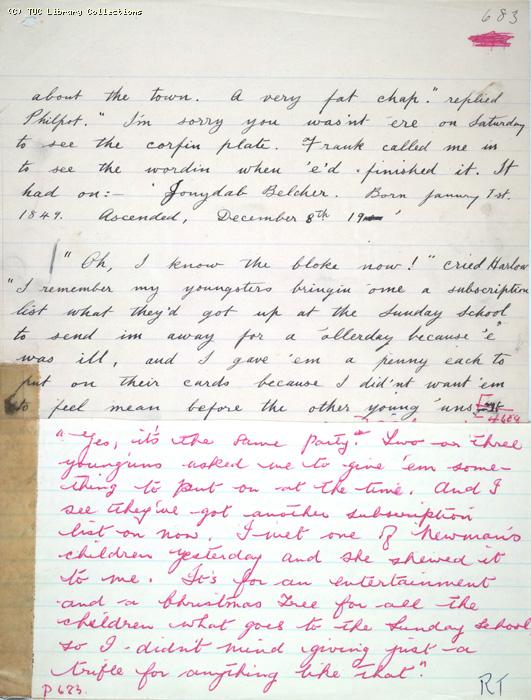 (C) TUC Library Collections
683
about the town. A very fat chap." replied
Philpot. "I'm sorry you was'nt 'ere on Saturday
to see the corfin plate. Frank called me in
to see the wordin when 'e'd finished it. It
had on:- 'Jonydab Belcher. Born January 1st.
1849. Ascended, December 8th 19—'
"Oh, I know the bloke now!" cried Harlow
"I remember my youngsters bringin 'ome a subscription
list what they'd got up at the Sunday school
to send im away for a 'ollerday because 'e
was ill, and I gave 'em a penny each to
put on their cards because I did'nt want 'em
to feel mean before the other young 'uns
"Yes, it's the same party. Two or three
young'uns asked me to give 'em some-
thing to put on at the time. And I
see they've got another subscription
list on now. I met one of Newman's
children yesterday and she shewed it
to me. It's for an entertainment
and a Christmas Tree for all the
children what goes to the Sunday School
so I didn't mind giving just a
trifle for anything like that."
p 683.
RT